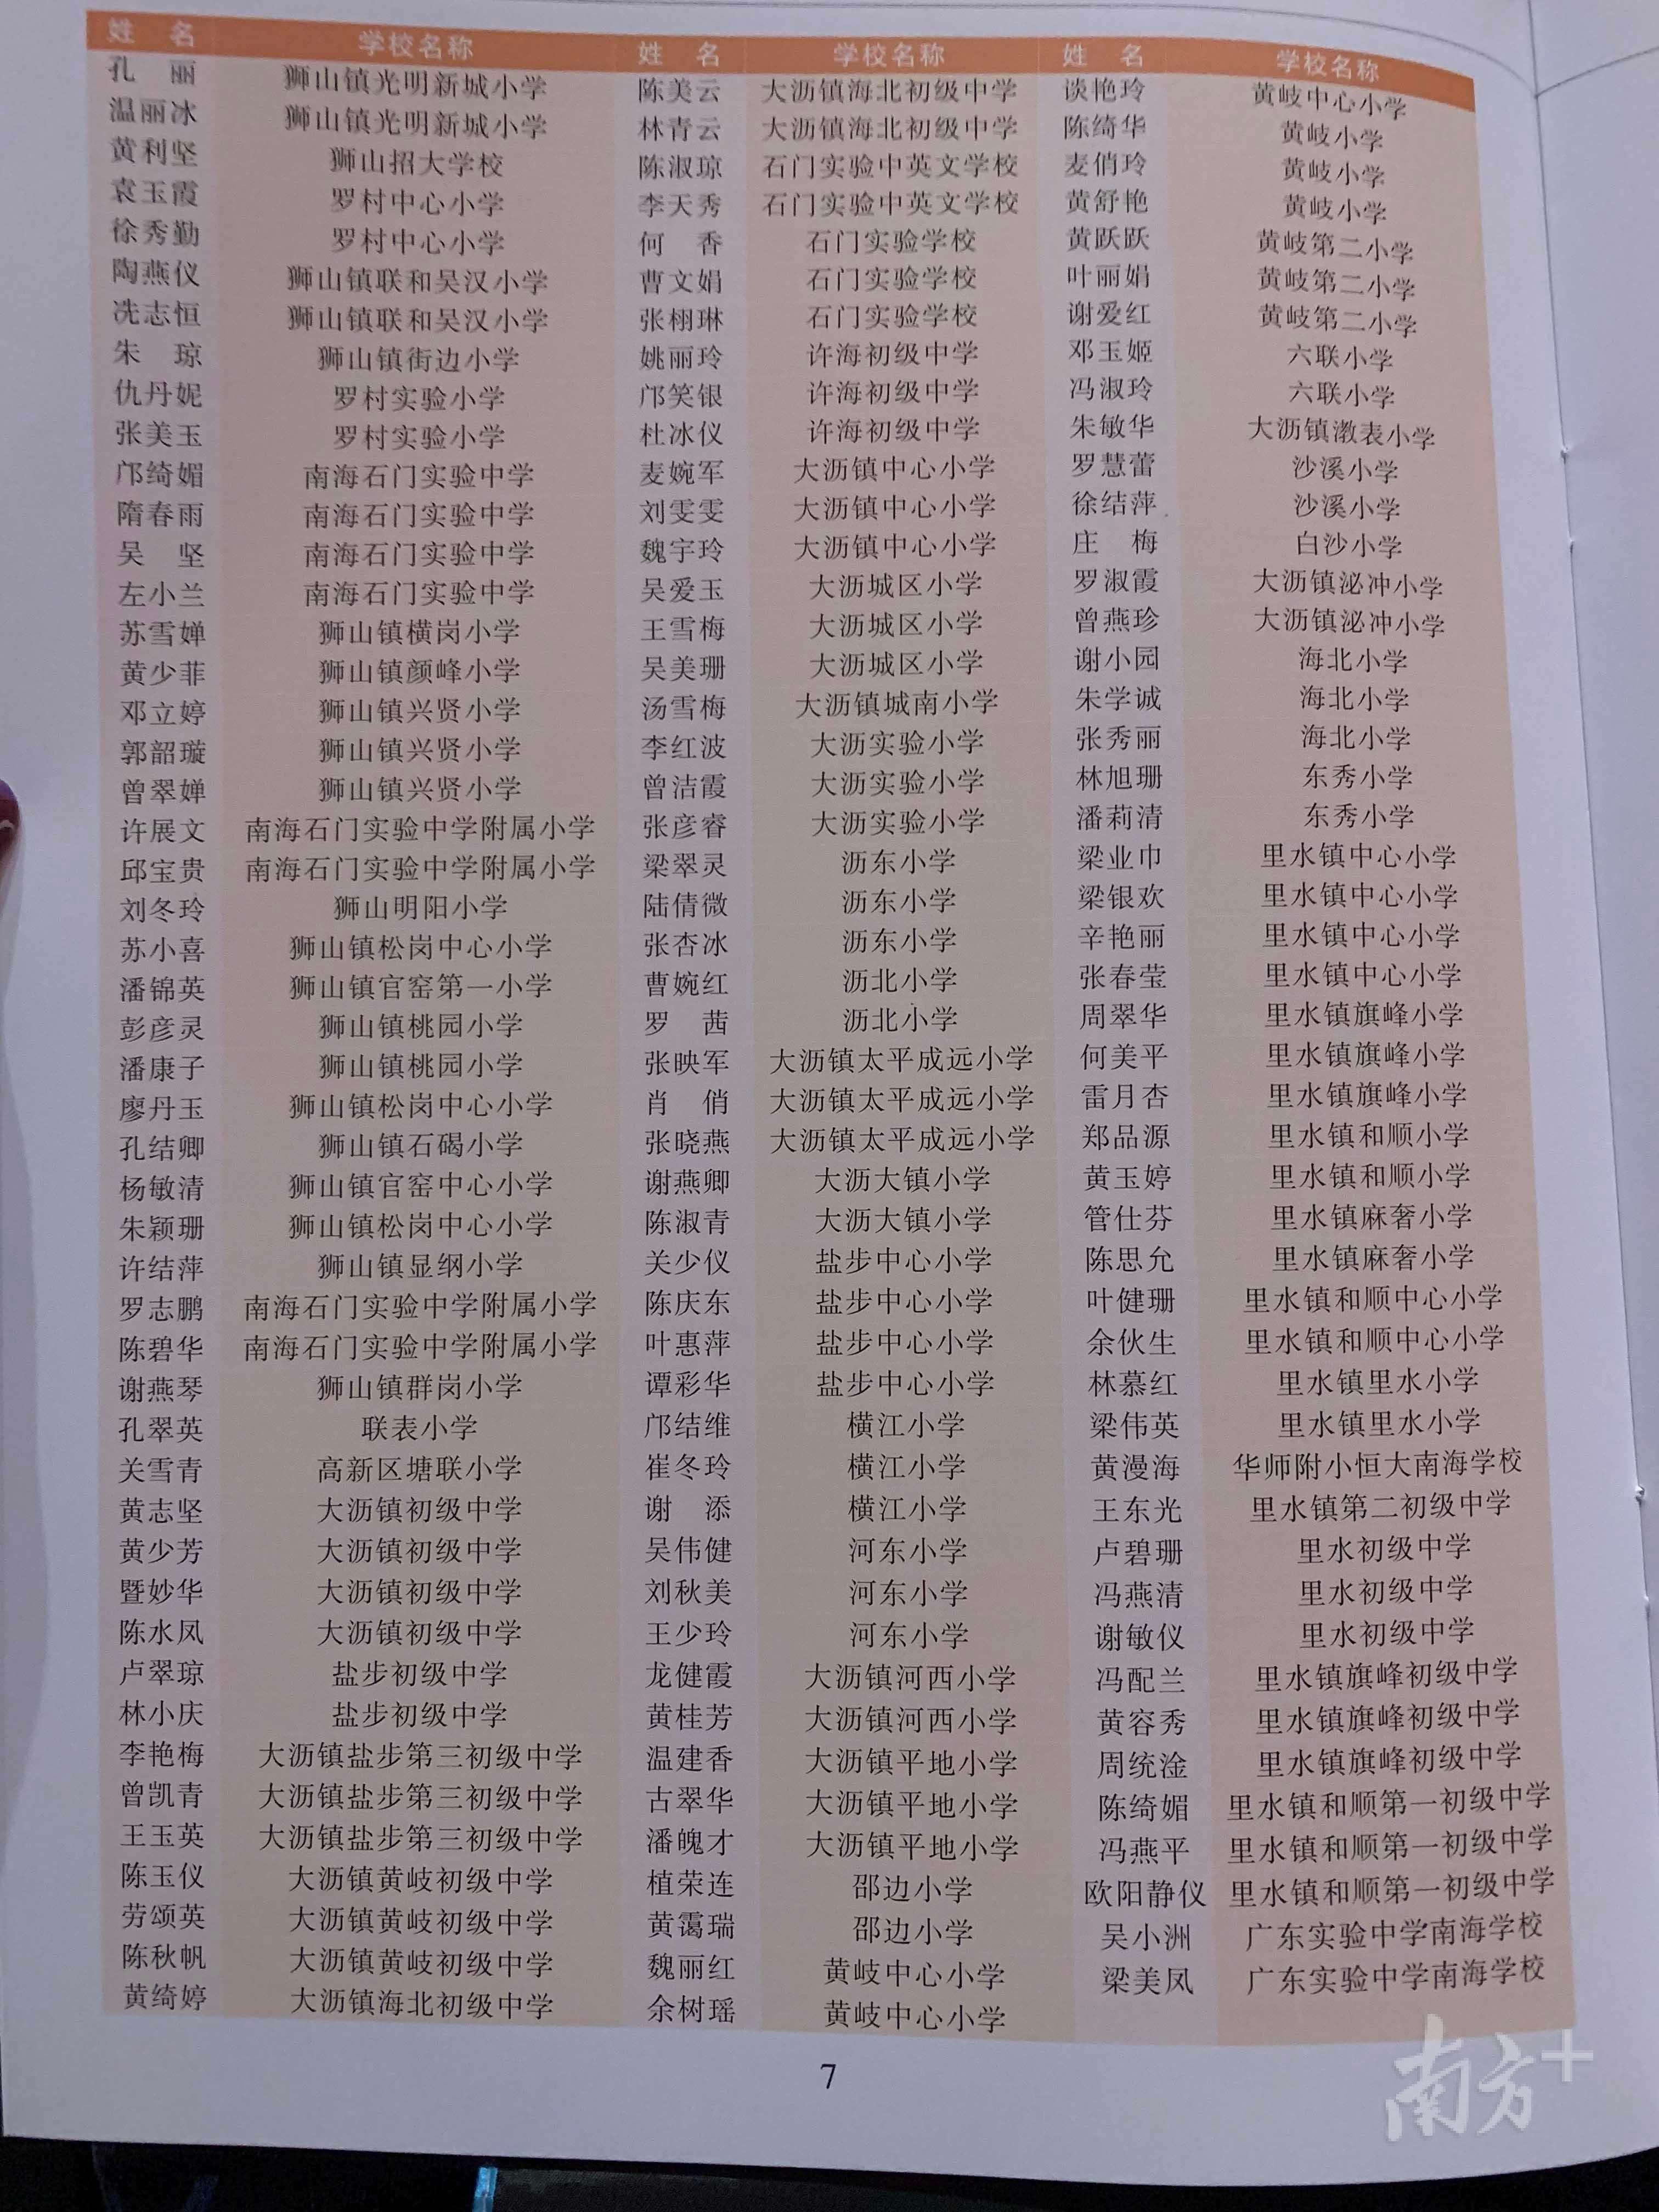 姓 名 学校名称 姓 名 学校名称 姓 名 学校名称
孔 丽 狮山镇光明新城小学 陈美云 大沥镇海北初级中学 谈艳玲 黄岐中心小学
温丽冰 狮山镇光明新城小学 林青云 大沥镇海北初级中学 陈绮华 黄岐小学
黄利坚 狮山招大学校 陈淑琼 石门实验中英文学校 麦俏玲 黄岐小学
袁玉霞 罗村中心小学 李天秀 石门实验中英文学校 黄舒艳 黄岐小学
徐秀勤 罗村中心小学 何 香 石门实验学校 黄跃跃 黄岐第二小学
陶燕仪 狮山镇联和吴汉小学 曹文娟 石门实验学校 叶丽娟 黄岐第二小学
冼志恒 狮山镇联和吴汉小学 张栩琳 石门实验学校 谢爱红 黄岐第二小学
朱 琼 狮山镇街边小学 姚丽玲 许海初级中学 邓玉姬 六联小学
仇丹妮 罗村实验小学 邝笑银 许海初级中学 冯淑玲 六联小学
张美玉 罗村实验小学 杜冰仪 许海初级中学 朱敏华 大沥镇漖表小学
邝绮媚 南海石门实验中学 麦婉军 大沥镇中心小学 罗慧蕾 沙溪小学
隋春雨 南海石门实验中学 刘雯雯 大沥镇中心小学 徐结萍 沙溪小学
吴 坚 南海石门实验中学 魏宇玲 大沥镇中心小学 庄 梅 白沙小学
左小兰 南海石门实验中学 吴爱玉 大沥城区小学 罗淑霞 大沥镇泌冲小学
苏雪婵 狮山镇横岗小学 王雪梅 大沥城区小学 曾燕珍 大沥镇泌冲小学
黄少菲 狮山镇颜峰小学 吴美珊 大沥城区小学 谢小园 海北小学
邓立婷 狮山镇兴贤小学 汤雪梅 大沥镇城南小学 朱学诚 海北小学
郭韶璇 狮山镇兴贤小学 李红波 大沥实验小学 张秀丽 海北小学
曾翠婵 狮山镇兴贤小学 曾洁霞 大沥实验小学 林旭珊 东秀小学
许展文 南海石门实验中学附属小学 张彦睿 大沥实验小学 潘莉清 东秀小学
邱宝贵 南海石门实验中学附属小学 梁翠灵 沥东小学 梁业巾 里水镇中心小学
刘冬玲 狮山明阳小学 陆倩微 沥东小学 梁银欢 里水镇中心小学
苏小喜 狮山镇松岗中心小学 张杏冰 沥东小学 辛艳丽 里水镇中心小学
潘锦英 狮山镇官窑第一小学 曹婉红 沥北小学 张春莹 里水镇中心小学
彭彦灵 狮山镇桃园小学 罗 茜 沥北小学 周翠华 里水镇旗峰小学
潘康子 狮山镇桃园小学 张映军 大沥镇太平成远小学 何美平 里水镇旗峰小学
廖丹玉 狮山镇松岗中心小学 肖 俏 大沥镇太平成远小学 雷月杏 里水镇旗峰小学
孔结卿 狮山镇石碣小学 张晓燕 大沥镇太平成远小学 郑品源 里水镇和顺小学
杨敏清 狮山镇官窑中心小学 谢燕卿 大沥大镇小学 黄玉婷 里水镇和顺小学
朱颖珊 狮山镇松岗中心小学 陈淑青 大沥大镇小学 管仕芬 里水镇麻奢小学
许结萍 狮山镇显纲小学 关少仪 盐步中心小学 陈思允 里水镇麻奢小学
罗志鹏 南海石门实验中学附属小学 陈庆东 盐步中心小学 叶健珊 里水镇和顺中心小学
陈碧华 南海石门实验中学附属小学 叶惠萍 盐步中心小学 余伙生 里水镇和顺中心小学
谢燕琴 狮山镇群岗小学 谭彩华 盐步中心小学 林慕红 里水镇里水小学
孔翠英 联表小学 邝结维 横江小学 梁伟英 里水镇里水小学
关雪青 高新区塘联小学 崔冬玲 横江小学 黄漫海 华师附小恒大南海学校
黄志坚 大沥镇初级中学 谢 添 横江小学 王东光 里水镇第二初级中学
黄少芳 大沥镇初级中学 吴伟健 河东小学 卢碧珊 里水初级中学
暨妙华 大沥镇初级中学 刘秋美 河东小学 冯燕清 里水初级中学
陈水凤 大沥镇初级中学 王少玲 河东小学 谢敏仪 里水初级中学
卢翠琼 盐步初级中学 龙健霞 大沥镇河西小学 冯配兰 里水镇旗峰初级中学
林小庆 盐步初级中学 黄桂芳 大沥镇河西小学 黄容秀 里水镇旗峰初级中学
李艳梅 大沥镇盐步第三初级中学 温建香 大沥镇平地小学 周统淦 里水镇旗峰初级中学
曾凯青 大沥镇盐步第三初级中学 古翠华 大沥镇平地小学 陈绮媚 里水镇和顺第一初级中学
王玉英 大沥镇盐步第三初级中学 潘魄才 大沥镇平地小学 冯燕平 里水镇和顺第一初级中学
陈玉仪 大沥镇黄岐初级中学 植荣连 邵边小学 欧阳静仪 里水镇和顺第一初级中学
劳颂英 大沥镇黄岐初级中学 黄霭瑞 邵边小学 吴小洲 广东实验中学南海学校
陈秋帆 大沥镇黄岐初级中学 魏丽红 黄岐中心小学 梁美凤 广东实验中学南海学校
黄绮婷 大沥镇海北初级中学 余树瑶 黄岐中心小学
7
南方+